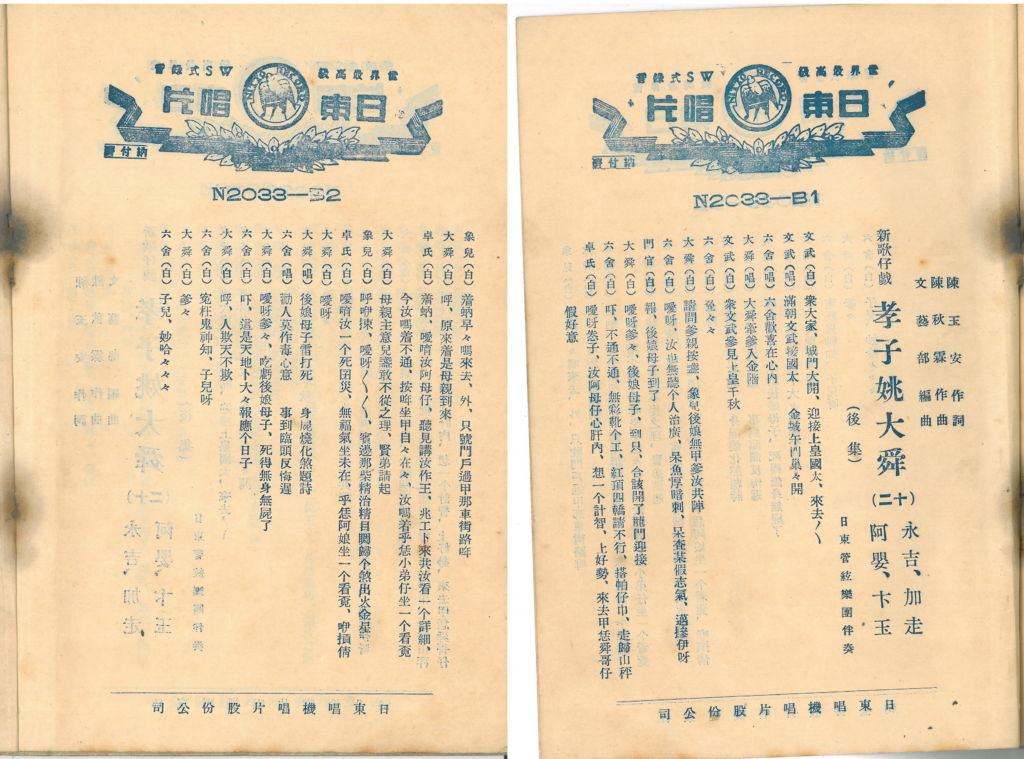 世界最高級 WS式錄音
NITTO RECORD
日東唱片
納付濟
N2033—B1
陳玉安作詞
陳秋霖作曲
文藝部編曲
新歌仔戲 孝子姚大舜(十二) 永吉、加走
(後集) 阿嬰、卞玉
日東管絃樂團伴奏
文武(白) 衆大家、城門大開、迎接上皇國太、來去
文武(唱) 滿朝文武接國太、金城午門巢々開
六舍(唱) 六舍歡喜在心內
大舜(唱) 大舜牽爹入金階
文武(白) 衆文武參見上皇千秋
六舍(白) 免々々
大舜(白) 請問參親按盞、象兒後娘無甲參汝共陣
六舍(白) 噯呀、汝也無聽个人治廣、呆魚厚暗刺、呆查某假志氣、伊呀
門官(白) 報、後娘母子到了
大舜(白) 噯呀爹々、後娘母子、到只、合該開了龍門迎接
六舍(白) 吓、不通不通、無彩枇个工、紅頂四轎請不行、搭帕仔巾、走歸山秤
卓氏(白) 噯呀恁子、汝阿母仔心肝內、想一个計智、上好勢、來去甲恁舜哥仔
假好意
日東唱機唱片股份公司
世界最高級 WS式錄音
NITTO RECORD
日東唱片
納付濟
N2033—B2
象兒(白) 蕭蚋早々嗎來去、外、只號門戶過甲那車街路哖
大舜(白) 呼、原來着是母親到來
卓氏(白) 蕭蚋、噯唷汝阿母仔、聽見講汝作王、兆工下來共汝看一个詳細、
今汝嗎着不通、按哖坐甲自々在々、汝嗎着乎恁小弟仔坐一个看覓
大舜(白) 母親主意兒敢不從之理、賢弟請起
象兒(白) 呼咿揀、噯呀、賓邊那柴精治精目睭歸个煞出火金星
卓氏(白) 噯唷汝一个死囝災、無福氣坐未在、乎恁阿娘坐一个看覓、咿
噯呀
大舜(唱) 後娘母子雷打死 身屍燒化煞題詩
六舍(唱) 勸人莫作毒心意 事到臨頭反悔遲
大舜(白) 噯呀爹々、吃虧後娘母子、死得無身無屍了
六舍(白) 吓、這是天地卜大々報應个日子
大舜(白) 呼、人欺天不欺
六舍(白) 寃枉鬼神知、子兒呀
大舜(白) 爹々
六舍(白) 子兒、妙哈々々々
日東唱機唱片股份公司